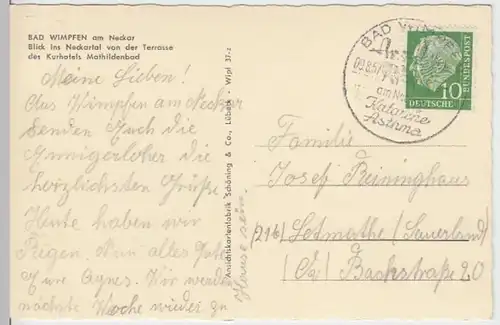 BAD WIMPFEN am Neckar
Blick ins Neckartal von der Terrasse
des Kurhotels Mathildenbad
Meine Lieben!
Aus Wimpfen am Neckar
senden Euch die
herzlichsten Grüße
Heute haben wir
Regen. Nun alles Gute
Eure Agnes. Wir werden
nächste Woche wieder zu
Hause sein.
Ansichtskartenfabrik Schöning & Co., Lübeck - Wipf 37-z
BAD
am Ne
Katarrhe
Asthma
10
DEUTSCHE BUNDESPOST
Familie
Josef Reininghaus
(21b) Letmathe (Sauerland)
Bachstraße 20